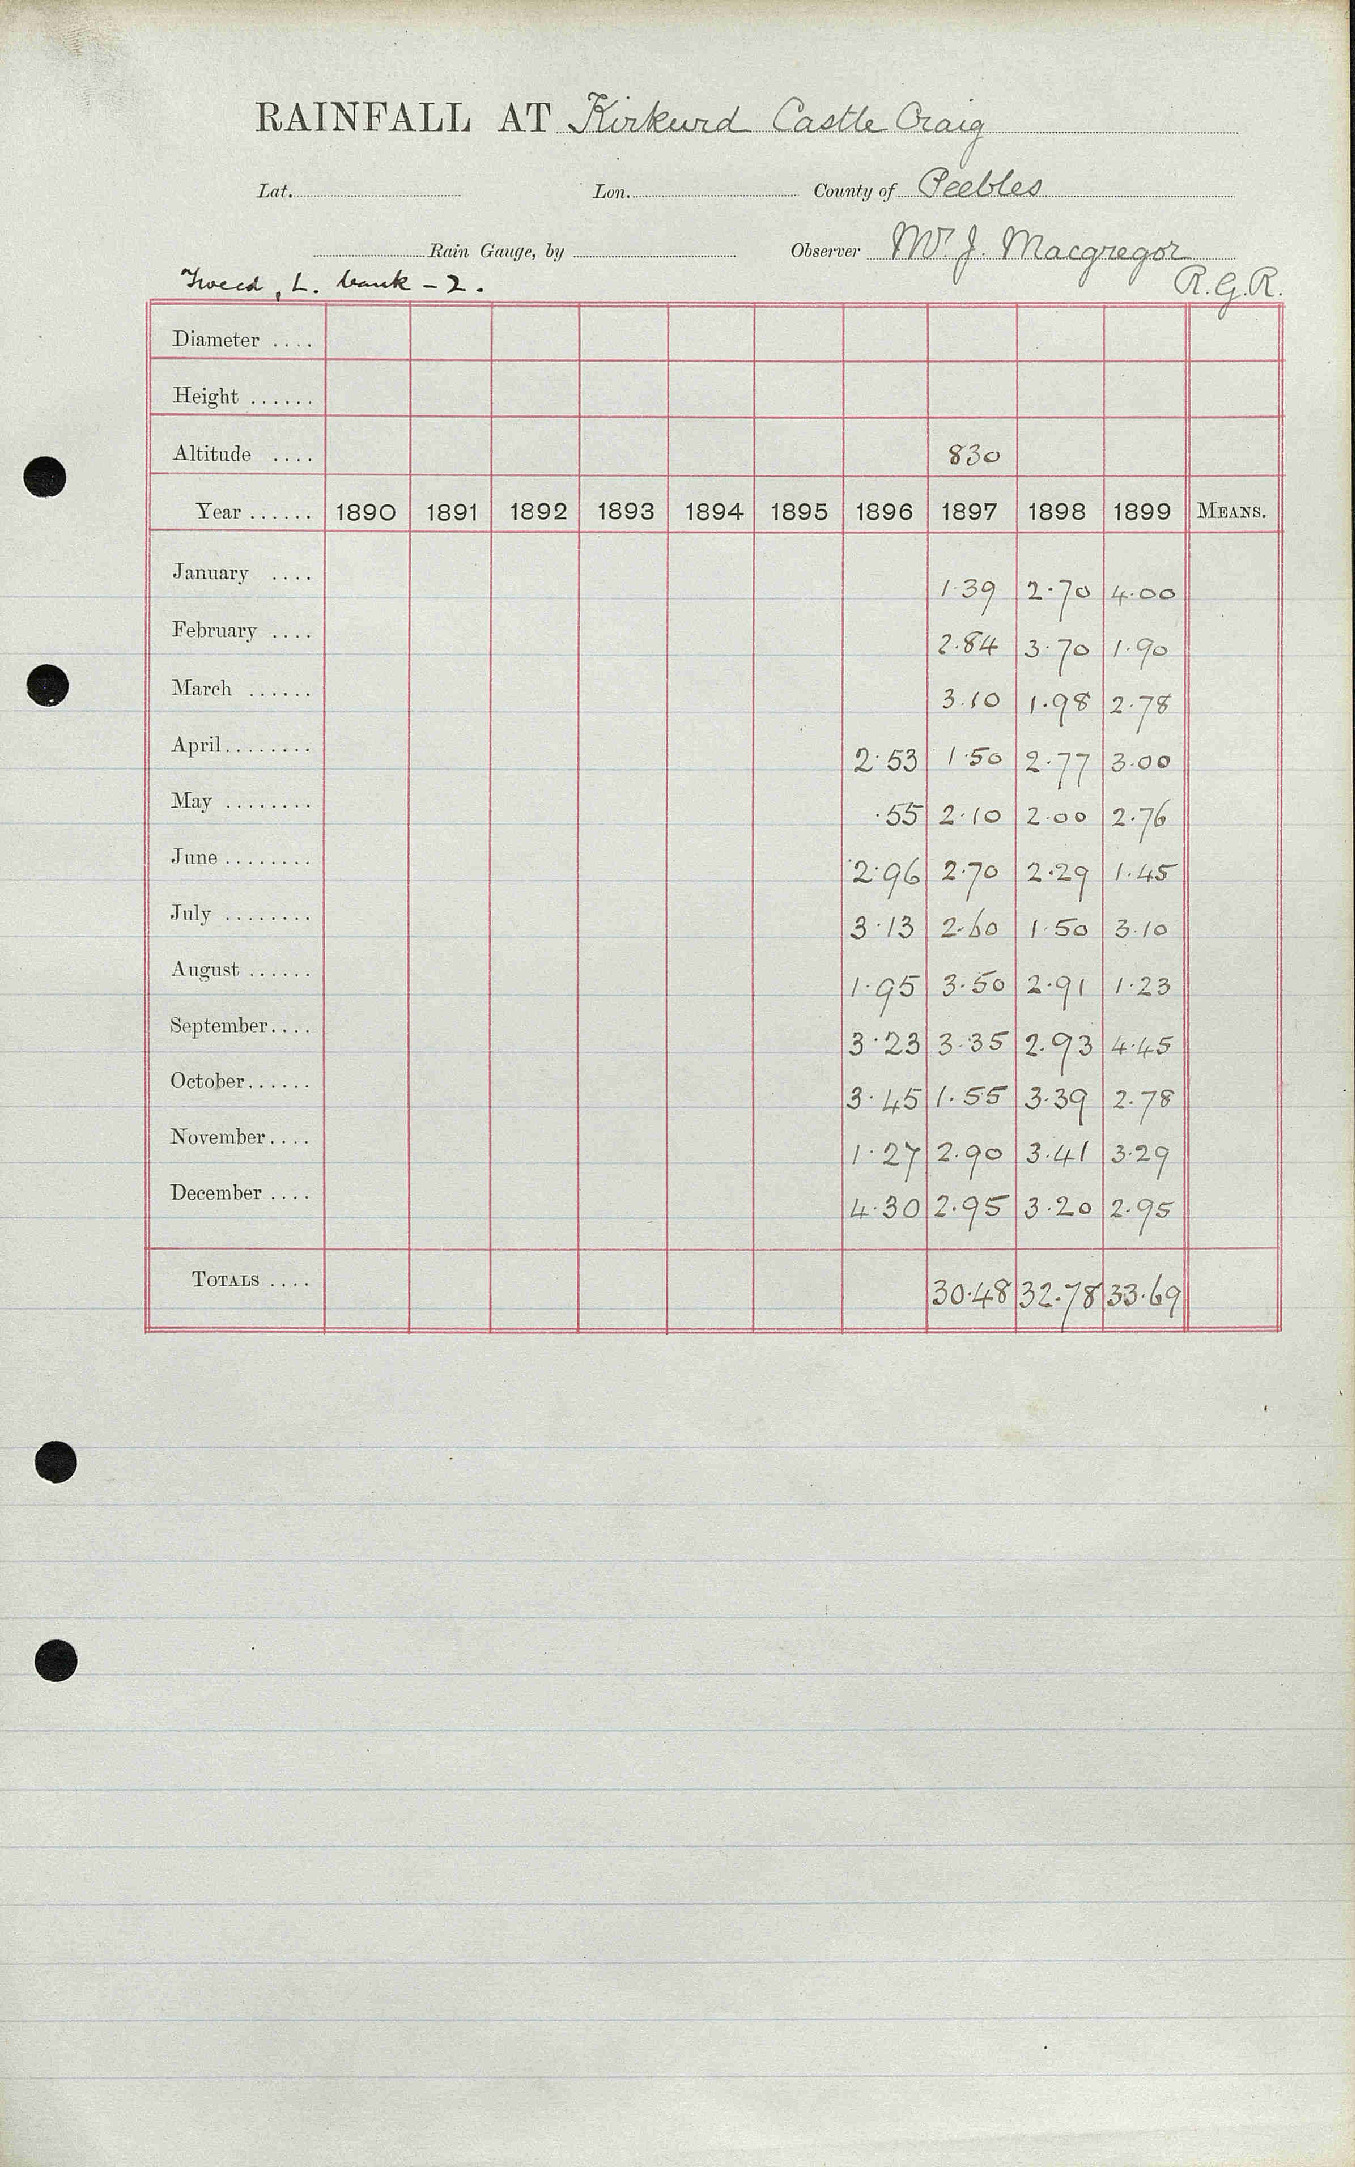 RAINFALL AT Kirkurd Castle Craig
Lat. Lon. County of Peebles
Rain Gauge, by Observer Mr. J. Macgregor
Tweed, L. bank - 2. R.G.R.
Diameter ....
Height ......
Altitude .... 830
Year ...... 1890 1891 1892 1893 1894 1895 1896 1897 1898 1899 MEANS.
January .... 1.39 2.70 4.00
February .... 2.84 3.70 1.90
March ...... 3.10 1.98 2.78
April........ 2.53 1.50 2.77 3.00
May ........ .55 2.10 2.00 2.76
June ........ 2.96 2.70 2.29 1.45
July ........ 3.13 2.60 1.50 3.10
August ...... 1.95 3.50 2.91 1.23
September.... 3.23 3.35 2.93 4.45
October...... 3.45 1.55 3.39 2.78
November.... 1.27 2.90 3.41 3.29
December .... 4.30 2.95 3.20 2.95
TOTALS .... 30.48 32.78 33.69